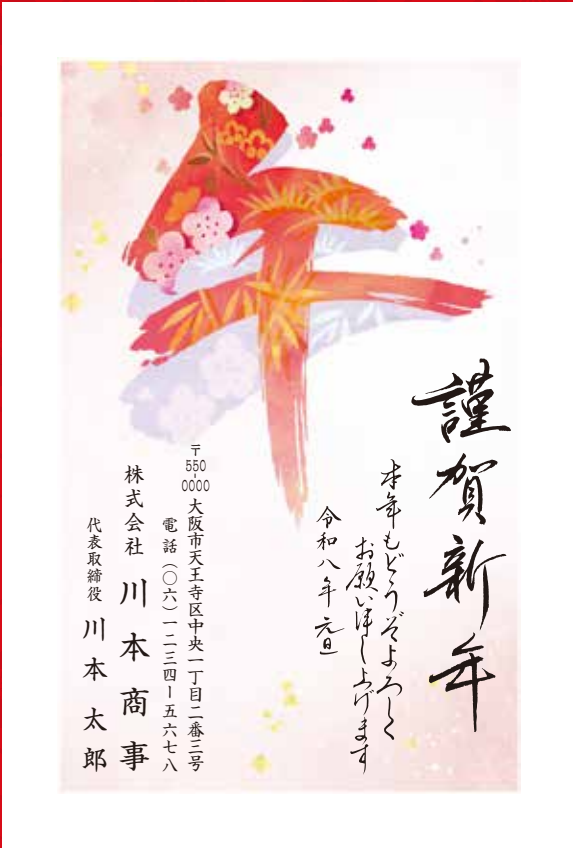 午
謹賀新年
本年もどうぞよろしく
お願い申し上げます
令和八年 元旦
〒550-0000 大阪市天王寺区中央一丁目二番三号
電話(〇六)一二三四ー五六七八
株式会社 川本商事
代表取締役 川本太郎